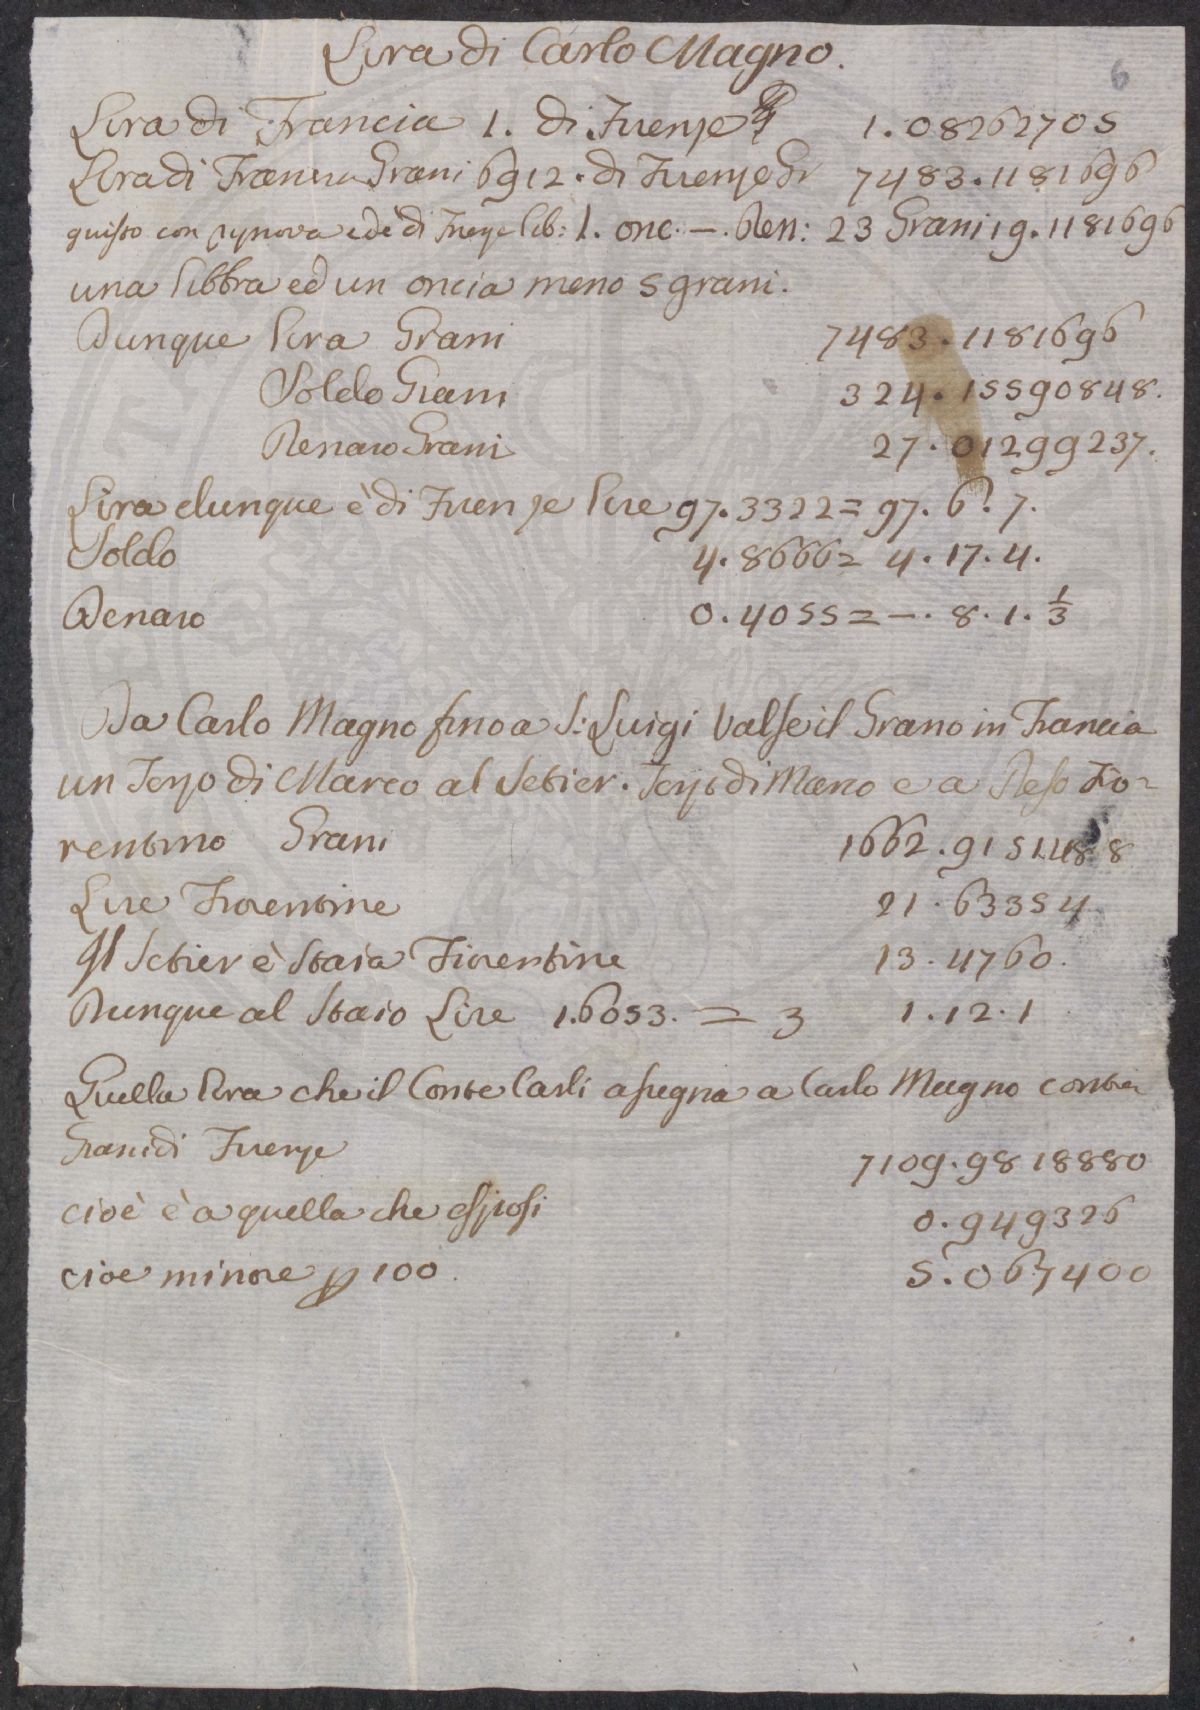 Lira di Carlo Magno.
6
Lira di Francia 1. di Firenze 1.08262705
Lira di Francia Grani 6912. di Firenze Gr 7483.1181696
questo con riprova ed è di Firenze lib: 1. onc. —. Den: 23 Grani 19.1181696
una libbra ed un oncia meno 5 grani.
Dunque lira Grani 7483.1181696
Soldo Grani 324.15590848.
Denaro Grani 27.01299237.
Lira dunque è di Firenze lire 97.3322 = 97. 6. 7.
Soldo 4.8666 = 4. 17. 4.
Denaro 0.4055 = —. 8. 1. 1/3
Da Carlo Magno fino a S: Luigi Valse il Grano in Francia
un Terzo di Marco al Setier. Terzo di Marco e a Peso Fio=
rentino Grani 1662.9151488
Lire Fiorentine 21.63354
Il Setier è Staia Fiorentine 13.4760.
Dunque al Staio Lire 1.6053. = 3 1.12.1
Quella lira che il Conte Carli assegna a Carlo Magno contien
Grani di Firenze 7109.9818880
cioè è a quella che esposi 0.949326
cioe minore p 100. 5.067400